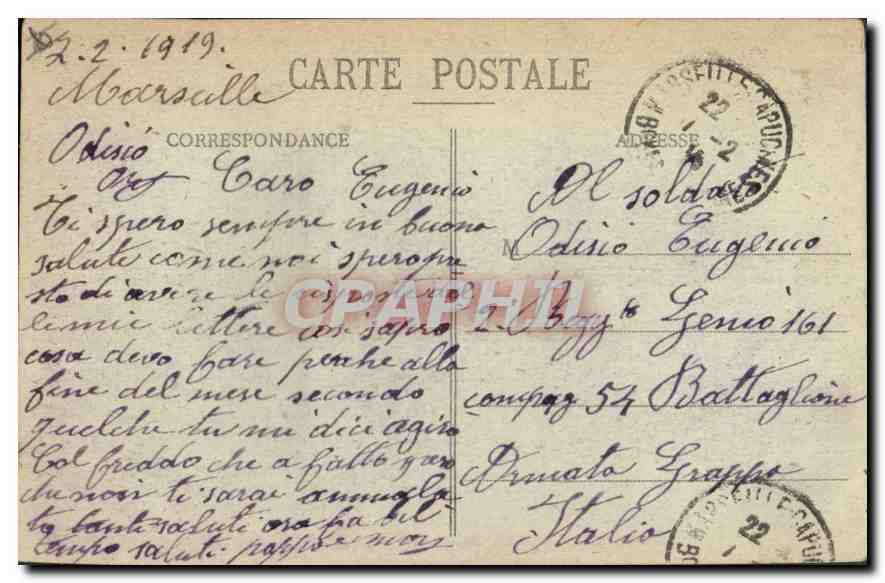 22.2.1919.
Marseille
CARTE POSTALE
CORRESPONDANCE
ADRESSE
Odisio
Caro Eugenio
Ti spero sempre in buona
salute come noi spero pre
sto di avere le risposte del
le mie lettere cosi sapro
cosa devo fare perche alla
fine del mese secondo
quelche tu mi dici agiro
Col freddo che a fatto spero
che non ti sarai ammala
to tanti saluti ora fa bel
tempo saluti
Al soldato
M
Odisio Eugenio
2° Regg to Genio 161
compag 54 Battaglione
Armata Grappa
Italia
MARSEILLE CAPUCINES
22
-2
MARSEILLE CAPUCINES
22
CPAPHIL